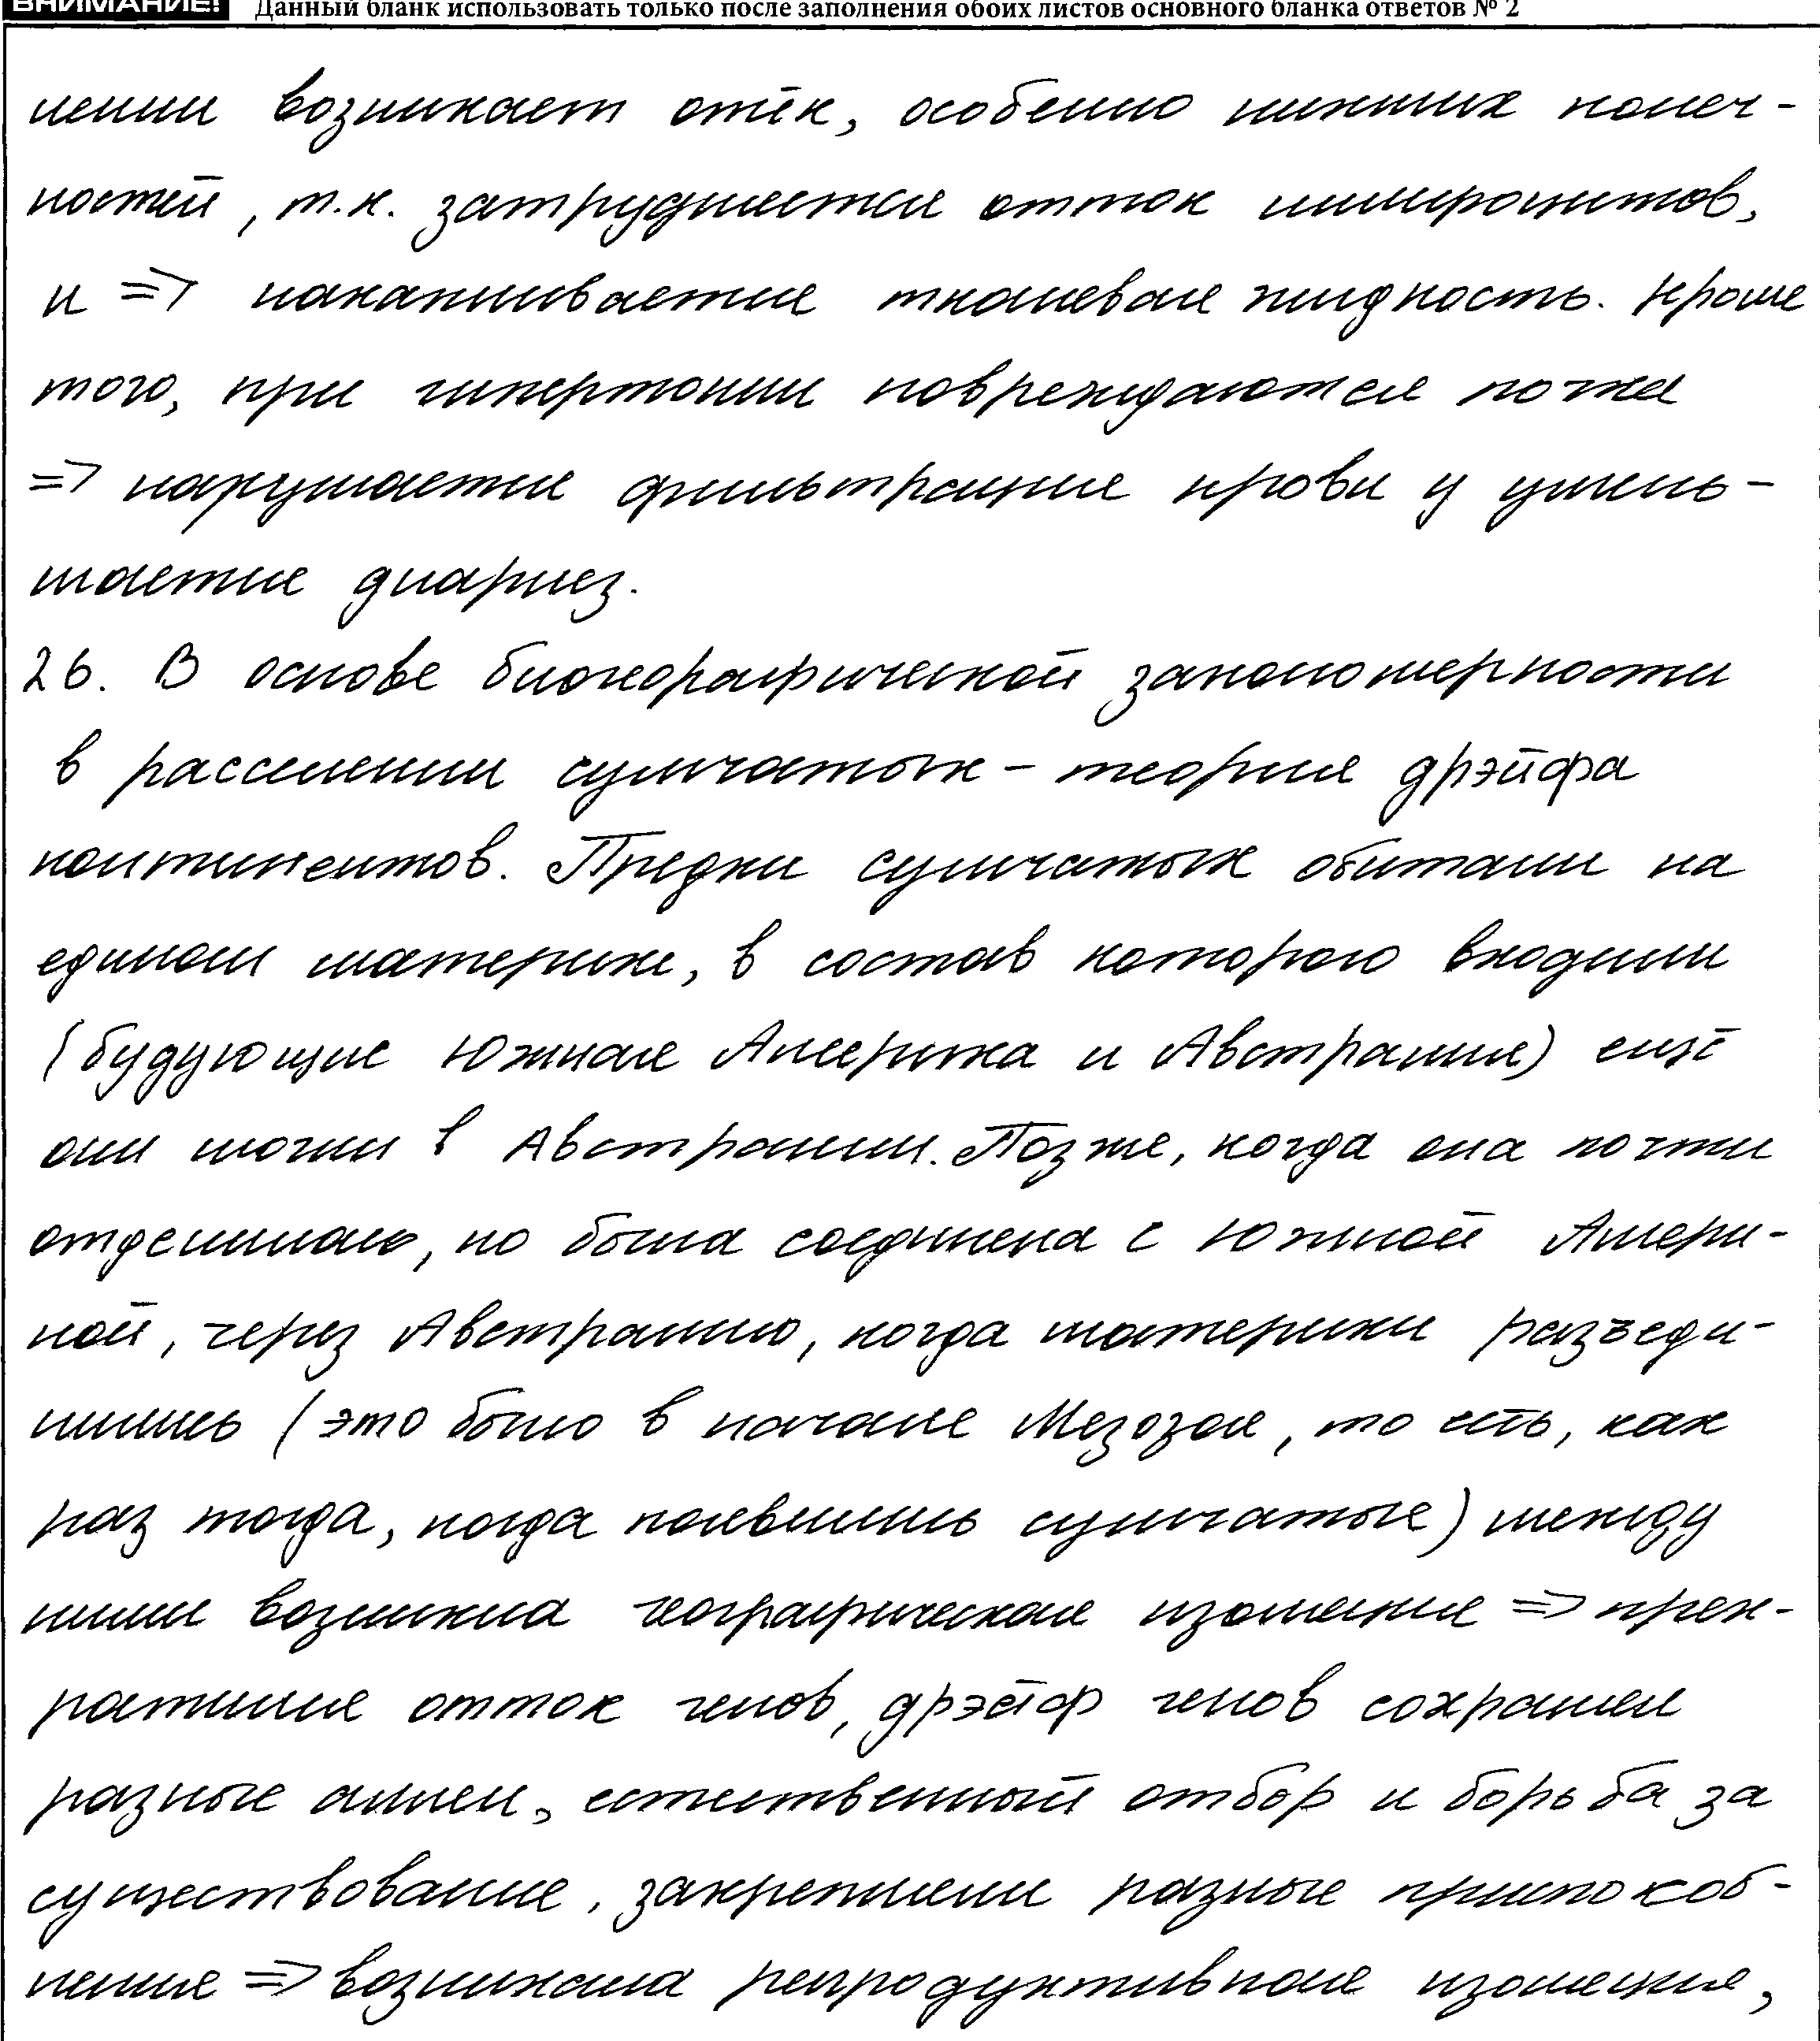 ВНИМАНИЕ! Данный бланк использовать только после заполнения обоих листов основного бланка ответов № 2
лении возникает отёк, особенно нижних конеч-
ностей, т.к. затрудняется отток лимфоцитов,
и => накапливается тканевая жидкость. Кроме
того, при гипертонии повреждаются почки
=> нарушается фильтрация крови и умень-
шается диарнез.
26. В основе биогеографической закономерности
в расселении сумчатых - теория дрэйфа
континентов. Предки сумчатых обитали на
едином материке, в состав которого входили
(будующие Южная Америка и Австралия) ещё
они могли в Австралии. Позже, когда она почти
отделилась, но была соединена с Южной Амери-
кой, через Австралию, когда материки разъеди-
нились (это было в начале Мезозоя, то есть, как
раз тогда, когда появились сумчатые) между
ними возникла географическая изоляция => прек-
ратился отток генов, дрэйф генов сохранял
разные аллели, естественный отбор и борьба за
существование, закрепляли разные приспособ-
ления => возникала репродуктивная изоляция,